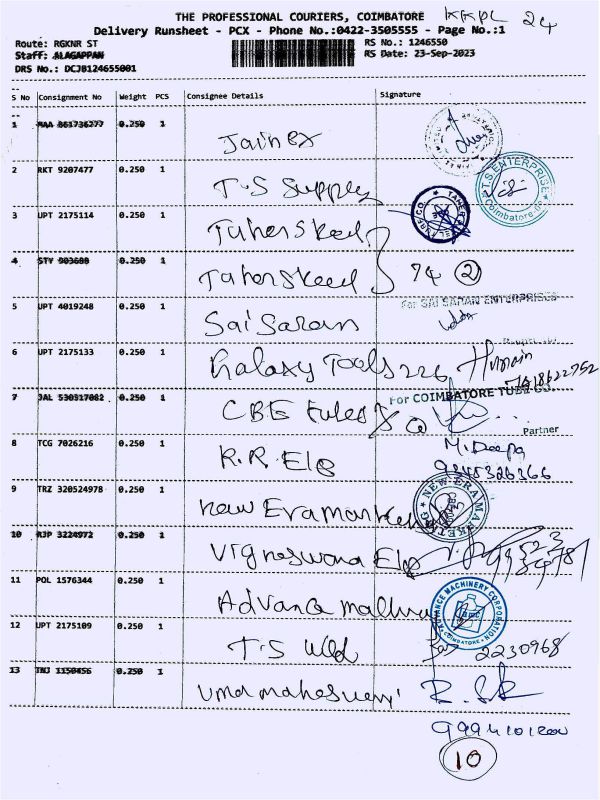 THE PROFESSIONAL COURIERS, COIMBATORE KKPL 24
Delivery Runsheet - PCX - Phone No.:0422-3505555 - Page No.:1
Route: RGKNR ST RS No.: 1246550
Staff: ALAGAPPAN RS Date: 23-Sep-2023
DRS No.: DCJB124655001
S No Consignment No Weight PCS Consignee Details Signature
1 MAA 863736277 0.250 1 Jainex
2 RKT 9207477 0.250 1 T.S Supply T.S ENTERPRISE Coimbatore
3 UPT 2175114 0.250 1
4 STY 903688 0.250 1 74 2
5 UPT 4019248 0.250 1 Sai Saran For SAI SARAN ENTERPRISES
6 UPT 2175133 0.250 1 Galaxy Tools 226
7 JAL 530317082 0.250 1 CBE Tubes For COIMBATORE TUBE CO.
Partner
8 TCG 7026216 0.250 1 R.R Ele M. Deepa
9 TRZ 320524978 0.250 1 New Era NEW ERA MARKETING
10 RJP 3224972 0.250 1
11 POL 1576344 0.250 1 Advance ADVANCE MACHINERY CORPORATION COIMBATORE
12 UPT 2175109 0.250 1 T.S Weld 2230968
13 TNJ 1150456 0.250 1
10